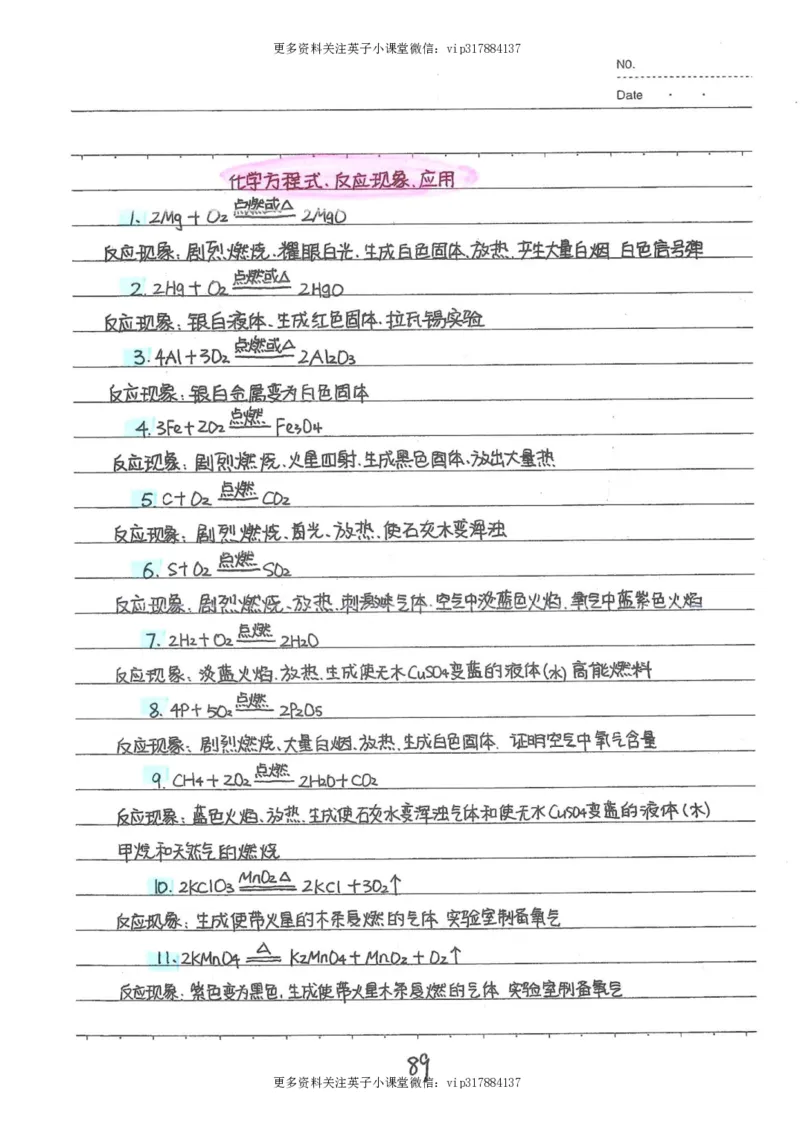 更多资料关注英子小课堂微信：vip317884137
NO.
Date · ·
化学方程式、反应现象、应用
1、2Mg + O2 点燃或△ 2MgO
反应现象：剧烈燃烧、耀眼白光、生成白色固体、放热、产生大量白烟 白色信号弹
2. 2Hg + O2 点燃或△ 2HgO
反应现象：银白液体、生成红色固体、拉瓦锡实验
3. 4Al + 3O2 点燃或△ 2Al2O3
反应现象：银白金属变为白色固体
4. 3Fe + 2O2 点燃 Fe3O4
反应现象：剧烈燃烧、火星四射、生成黑色固体、放出大量热
5. C + O2 点燃 CO2
反应现象：剧烈燃烧、白光、放热、使石灰水变浑浊
6. S + O2 点燃 SO2
反应现象：剧烈燃烧、放热、刺激味气体、空气中淡蓝色火焰、氧气中蓝紫色火焰
7. 2H2 + O2 点燃 2H2O
反应现象：淡蓝火焰、放热、生成使无水CuSO4变蓝的液体(水) 高能燃料
8. 4P + 5O2 点燃 2P2O5
反应现象：剧烈燃烧、大量白烟、放热、生成白色固体. 证明空气中氧气含量
9. CH4 + 2O2 点燃 2H2O + CO2
反应现象：蓝色火焰、放热、生成使石灰水变浑浊气体和使无水CuSO4变蓝的液体(水)
甲烷和天然气的燃烧
10. 2KClO3 MnO2△ 2KCl + 3O2↑
反应现象：生成使带火星的木条复燃的气体 实验室制备氧气
11、2KMnO4 △ K2MnO4 + MnO2 + O2↑
反应现象：紫色变为黑色，生成使带火星木条复燃的气体 实验室制备氧气
89
更多资料关注英子小课堂微信：vip317884137